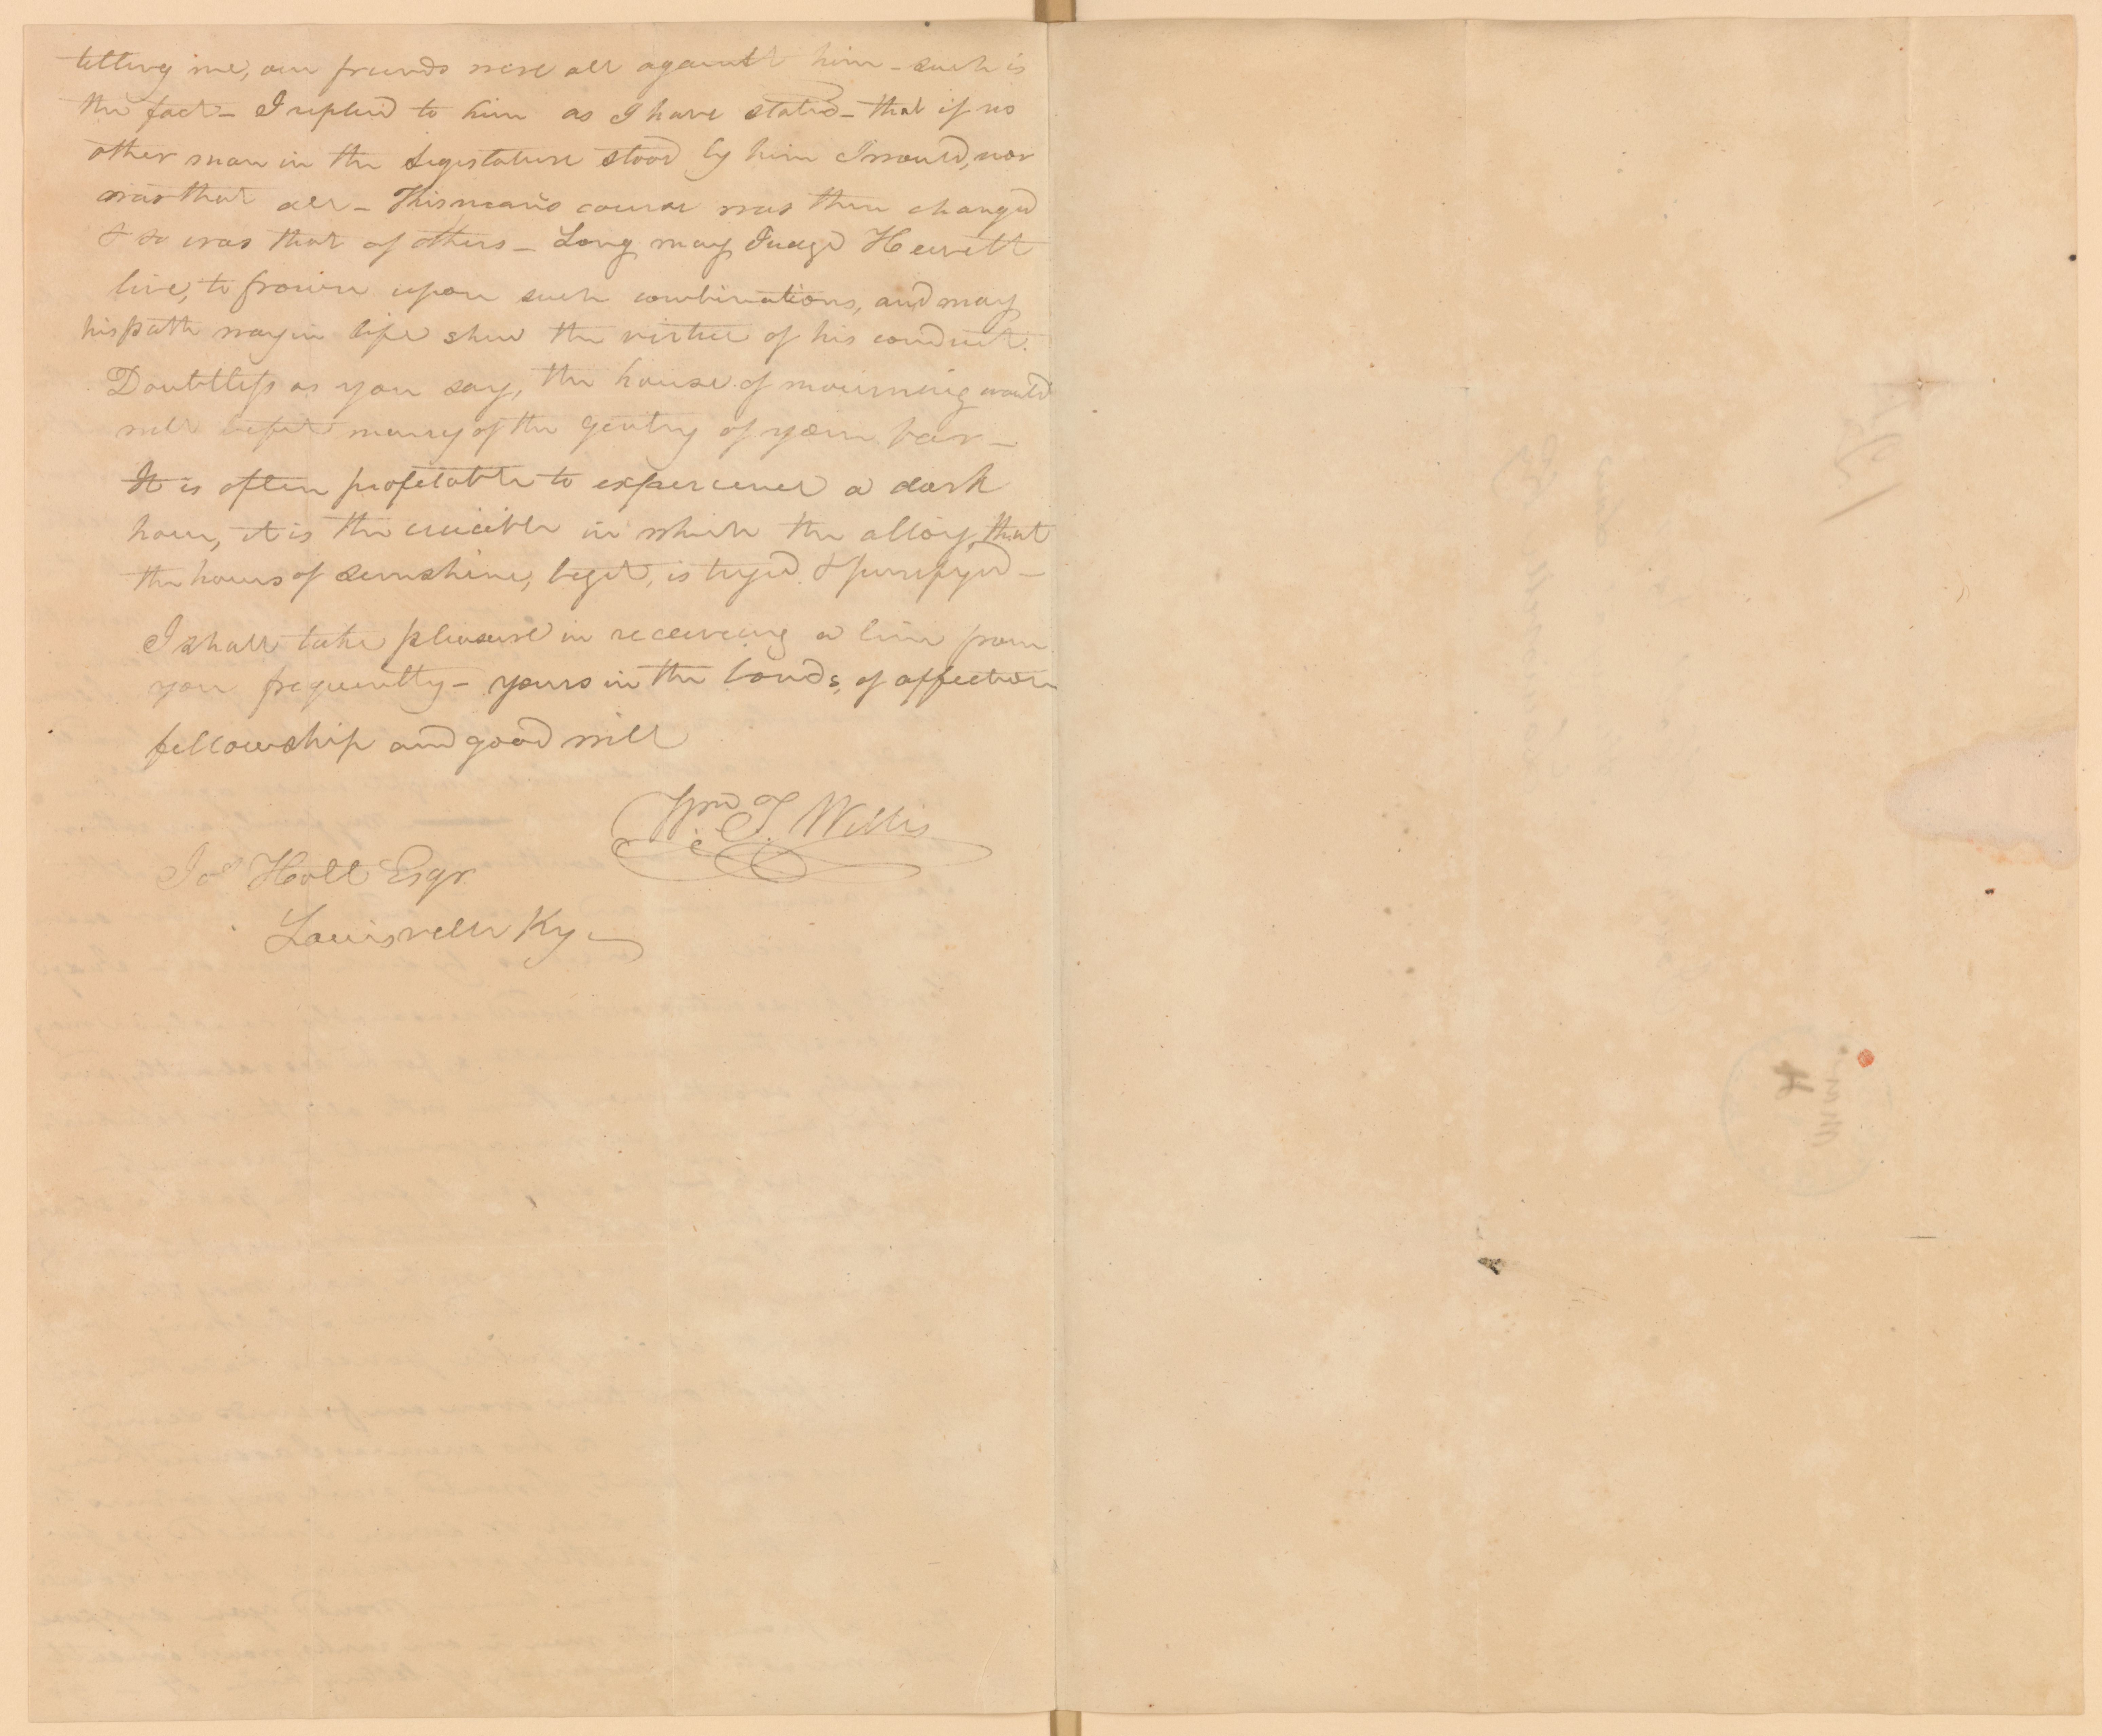 telling me, our friends were all against him - such is
the fact - I replied to him as I have stated - that if no
other man in the Legislature stood by him I would, nor
was that all - This man's course was then changed
& so was that of others - Long may Judge Hewett
live, to frown upon such combinations, and may
his path way in life shew the virtue of his conduct.
Doubtless as you say, the house of mourning would
well befit many of the gentry of your bar -
It is often profitable to experience a dark
hour, it is the crucible in which the alloy, that
the hours of sunshine, beget, is tryed & purifyed -
I shall take pleasure in receiving a line from
you frequently - yours in the bonds, of affection
fellowship and good will
Wm. T. Willis
Jos Holt Esqr.
Louisville Ky -